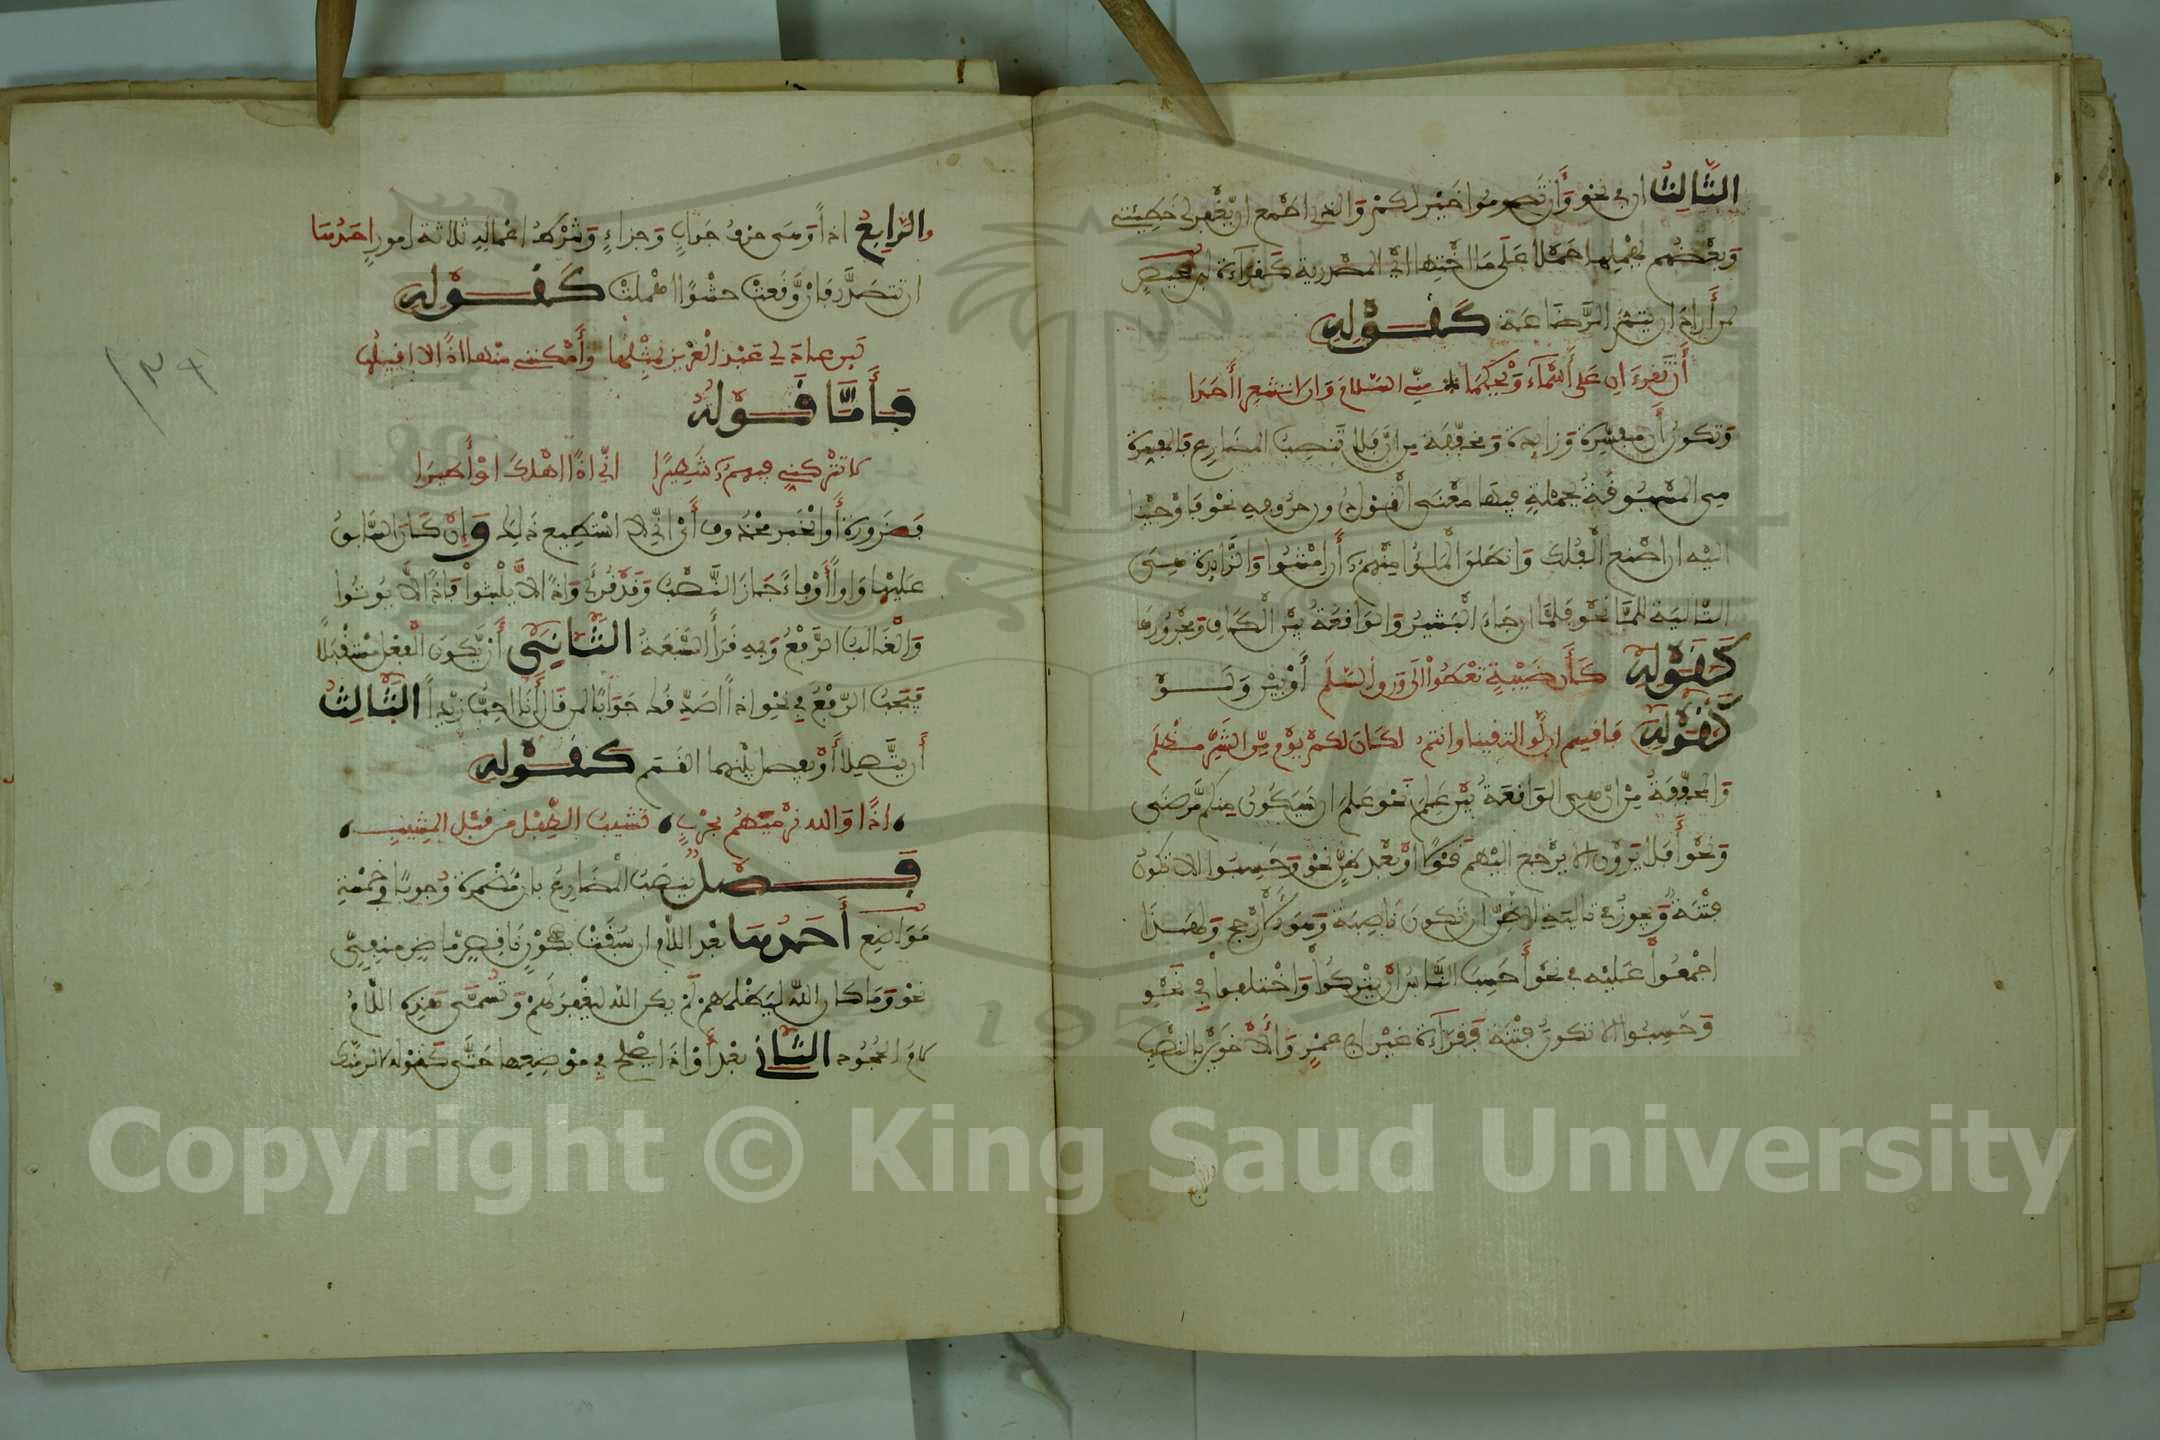 الثَّالِثُ ان في نحو وَأَن تَصوموا خَيْر لَّكُمْ وَالذي اطْمع ان يَّغْفِر لي خَطِيئَتِي
وَبَعْضُهم يهْمِلها حَمْلا عَلَى مَا اخْتِها اي المصْدرية كَقِرَآءة ابن مُحَيْصِنٍ
لمن أَرَادَ ان يتمُّ الرَّضَاعَة كَقَوْلِهِ
أَن تَقْرءَانِ عَلَى أَسْمَآءَ وَيْحَكُمَا مِنّي السَّلامَ وَان لا تشعِرا أَحَدَا
وَتَكونُ أَن مفَسِّرة وَزايدة وَمخَفَّفَة مِن انَّ فلا تَنصِبُ المضَارِع فالمفسِّرة
هي المسْبُوقَةُ بجملة فيها مَعْنَى الْقَوْل دُون حرُوفهِ نحو فَأَوْحَيْنا
اليْه ان اصْنع الْفُلك وَانطَلَقَ الْمَلَؤُا مِنْهمُ أَن امْشُوا وَالزَّايدة هِيَ
التَّاليَة لِلمَّا نحو فَلمَّا أن جَاءَ الْبَشيرُ وَالوَاقعَةُ بيْن الْكَاف وَمجْرُورهَا
كَقَوْلِهِ كَأَن ظَبْيَةٍ تَعْطُوا الى وَرقِ السَّلَم أَوْ بيْن وَلَوْ
كَقَوْلِهِ فَاقسِم ان لَّوِ التقينا وانتم لكَانَ لكمْ يَوْم مِّن الشَّرِّ مظْلم
وَالمخَفَّفَةُ مِنْ انَّ هِيَ الوَاقعَةُ بَعْد عِلم نَحو عَلمَ ان سَيَكُونُ مِنكُم مَّرضَى
وَنحو أَفلا يَرَوْنَ الا يَرْجع اليْهمْ قَوْلا اوْ بعْد ظَنٍّ نحو وَحَسِبُوا الا تكون
فِتْنة وَيَجوزُ في تاليَة الظنّ ان تكونَ نَاصِبَة وَهوَ الأَرْجح وَلِهَذَا
اجْمعُوا عَلَيْه في نحو أَحَسِبَ النَّاسُ ان يّتْرَكُوا وَاخْتلفوا في نَحْوِ
وَحَسِبُوا الا تكونَ فِتْنة فَقرَأَهُ غَيْر ابي عَمْرٍو وَالأَخَوَيْن بالنَّصْبِ
والرَّابِعُ اذاً وَهي حرف جَوابٍ وَجزاءٍ وَشرْطُ اعْمالهِ ثلاثة امورٍ احَدُهَا
ان تتصَدَّر فإن وَّقَعَتْ حَشْوًا اهْمِلَتْ كَقَوْلِهِ
لَئِن عادَ لي عَبْد الْعَزِيز بِمِثْلِها وَأَمْكَنني مِنْها اذاً لا اقيلُها
فَأَمَّا قَوْلُهُ
لا تتْركَنِّي فيهمُ شَطِيرًا اني اذاً اهْلكَ اوْ أَطيرَا
فَضَرورة أَو الخبر محْذوف أَيْ انّي لا اسْتطيع ذَلِكَ وَإِنْ كان السَّابِقُ
عَليْها وَاواً أَوْ فاءً جَازَ النَّصْبُ وَقَدْ قُرِئَ وَاذاً لا يَّلْبَثُوا فَاذاً لا يُوتُوا
وَالْغَالبُ الرَّفْعُ وَبهِ قَرَأَ السَّبْعَةُ الثَّانِي أَن يَّكُونَ الْفِعْلُ مُسْتَقْبَلاً
فَيَجبُ الرَّفْعُ في نحوِ اذاً اصَدِّقُكَ جَوَابًا لمن قَالَ أَنَا احِبُّ زَيْداً الثَّالِثُ
أَن يتَّصِلا أَوْ يفصل بيْنهما القَسَم كَقَوْلِهِ
اذاً وَالله نَرْمِيَهُم بِحَرْبٍ تشيبُ الطِّفل من قَبْل المشِيبِ
فَصْل يُنصَبُ المضَارِعُ بان مُضْمرة وُجوبًا في خمْسَةِ
مَوَاضِع أَحَدُهَا بَعْد اللَّامِ ان سُبقَتْ بكَوْنٍ نَاقِصٍ مَاضٍ منفِيّ
نحو وَمَا كان اللهُ لِيَظْلمَهمْ لَمْ يكن الله لِيَغْفِرَ لَهمْ وَتُسَمَّى هَذِه اللَّامُ
لامَ الجحُودِ الثَّانِي بَعْد أَوْ اذَا صَلحَ في مَوْضِعِها حَتَّى كَقَوْلِه لالزمنَّك